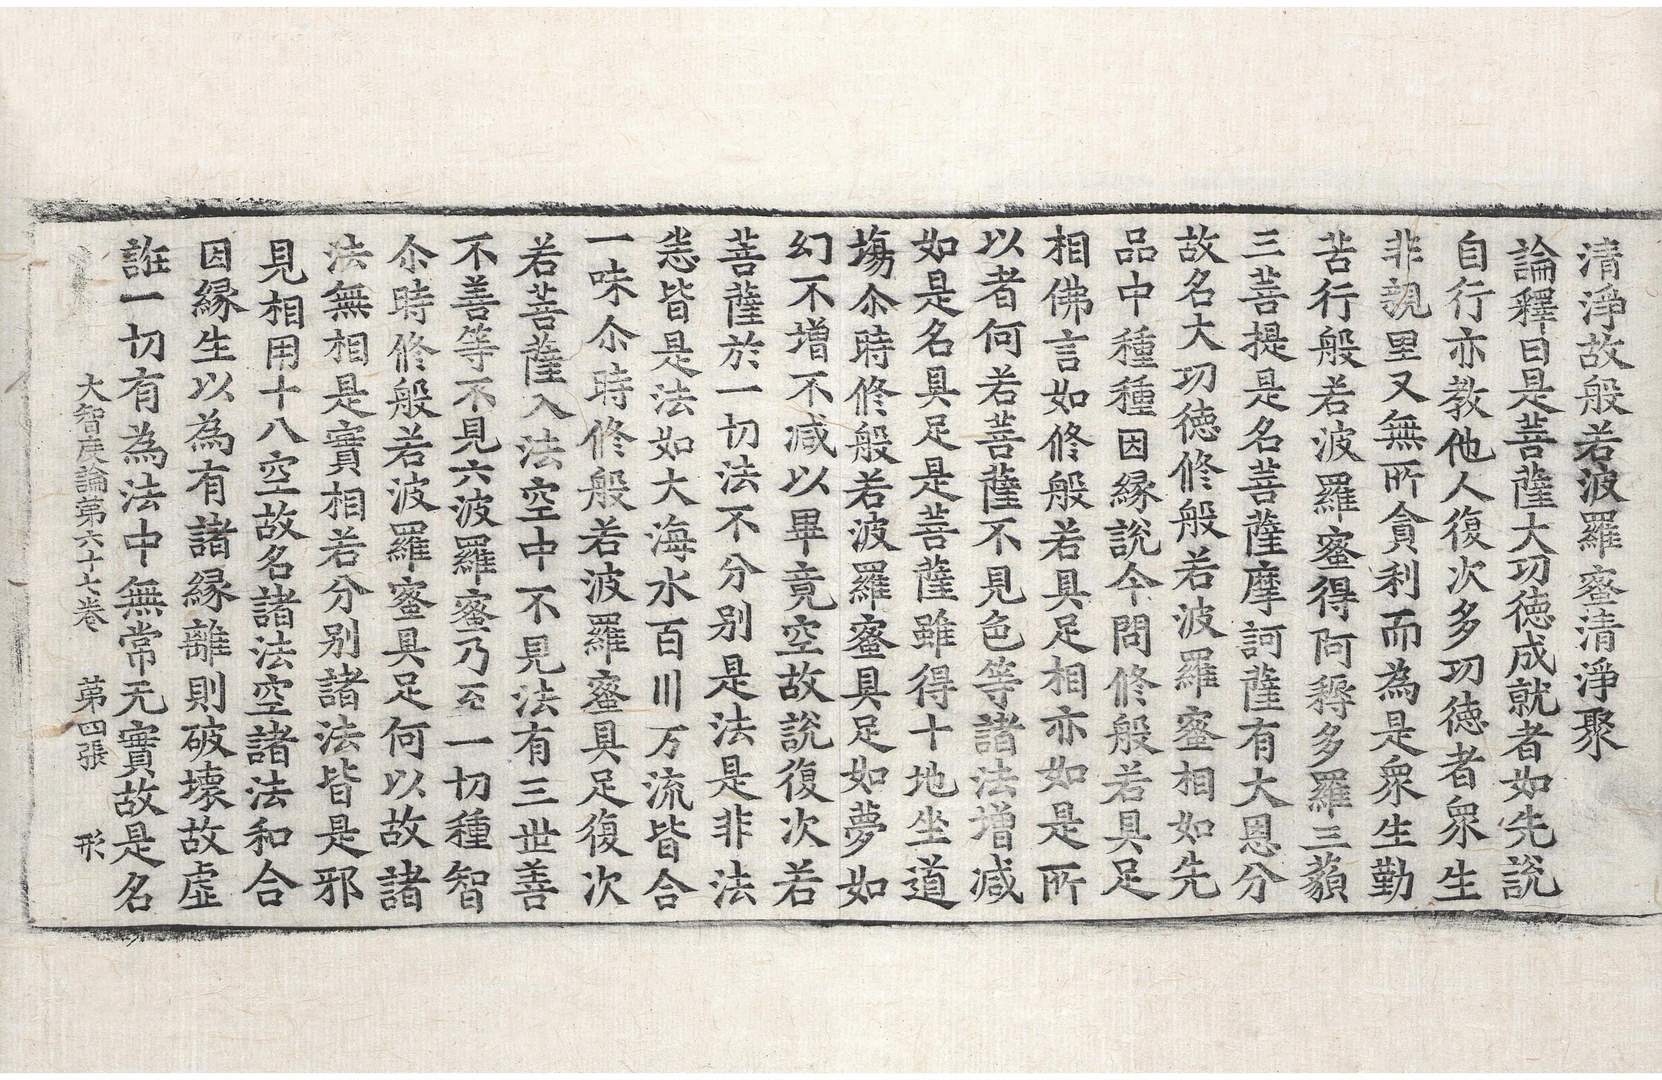 清淨故般若波羅蜜清淨聚
論釋曰是菩薩大功德成就者如先說
自行亦教他人復次多功德者衆生
非親里又無所貪利而為是衆生勤
苦行般若波羅蜜得阿耨多羅三藐
三菩提是名菩薩摩訶薩有大恩分
故名大功德修般若波羅蜜相如先
品中種種因縁說今問修般若具足
相佛言如修般若具足相亦如是所
以者何若菩薩不見色等諸法増减
如是名具足是菩薩雖得十地坐道
場尒時修般若波羅蜜具足如夢如
幻不増不减以畢竟空故說復次若
菩薩於一切法不分别是法是非法
悉皆是法如大海水百川万流皆合
一味尒時修般若波羅蜜具足復次
若菩薩入法空中不見法有三世善
不善等不見六波羅蜜乃至一切種智
尒時修般若波羅蜜具足何以故諸
法無相是實相若分别諸法皆是邪
見相用十八空故名諸法空諸法和合
因縁生以為有諸縁離則破壞故虛
誑一切有為法中無常无實故是名
大智度論第六十七卷 第四張 形